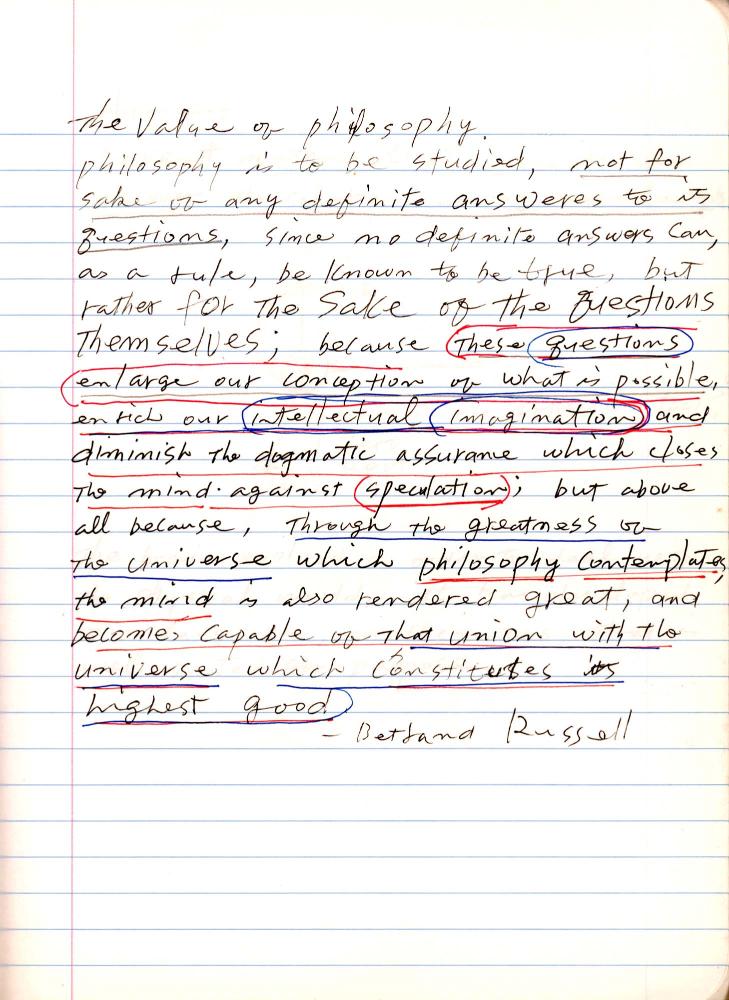 The Value of philosophy.
philosophy is to be studied, not for
sake of any definite answeres to its
questions, since no definite answers can,
as a rule, be known to be true, but
rather for the sake of the questions
themselves; because these questions
enlarge our conception of what is possible,
enrich our intellectual imagination and
diminish the dogmatic assurance which closes
the mind against speculation; but above
all because, through the greatness of
the universe which philosophy contemplates,
the mind is also rendered great, and
becomes capable of that union with the
universe which constitutes its
highest good
- Betrand Russell